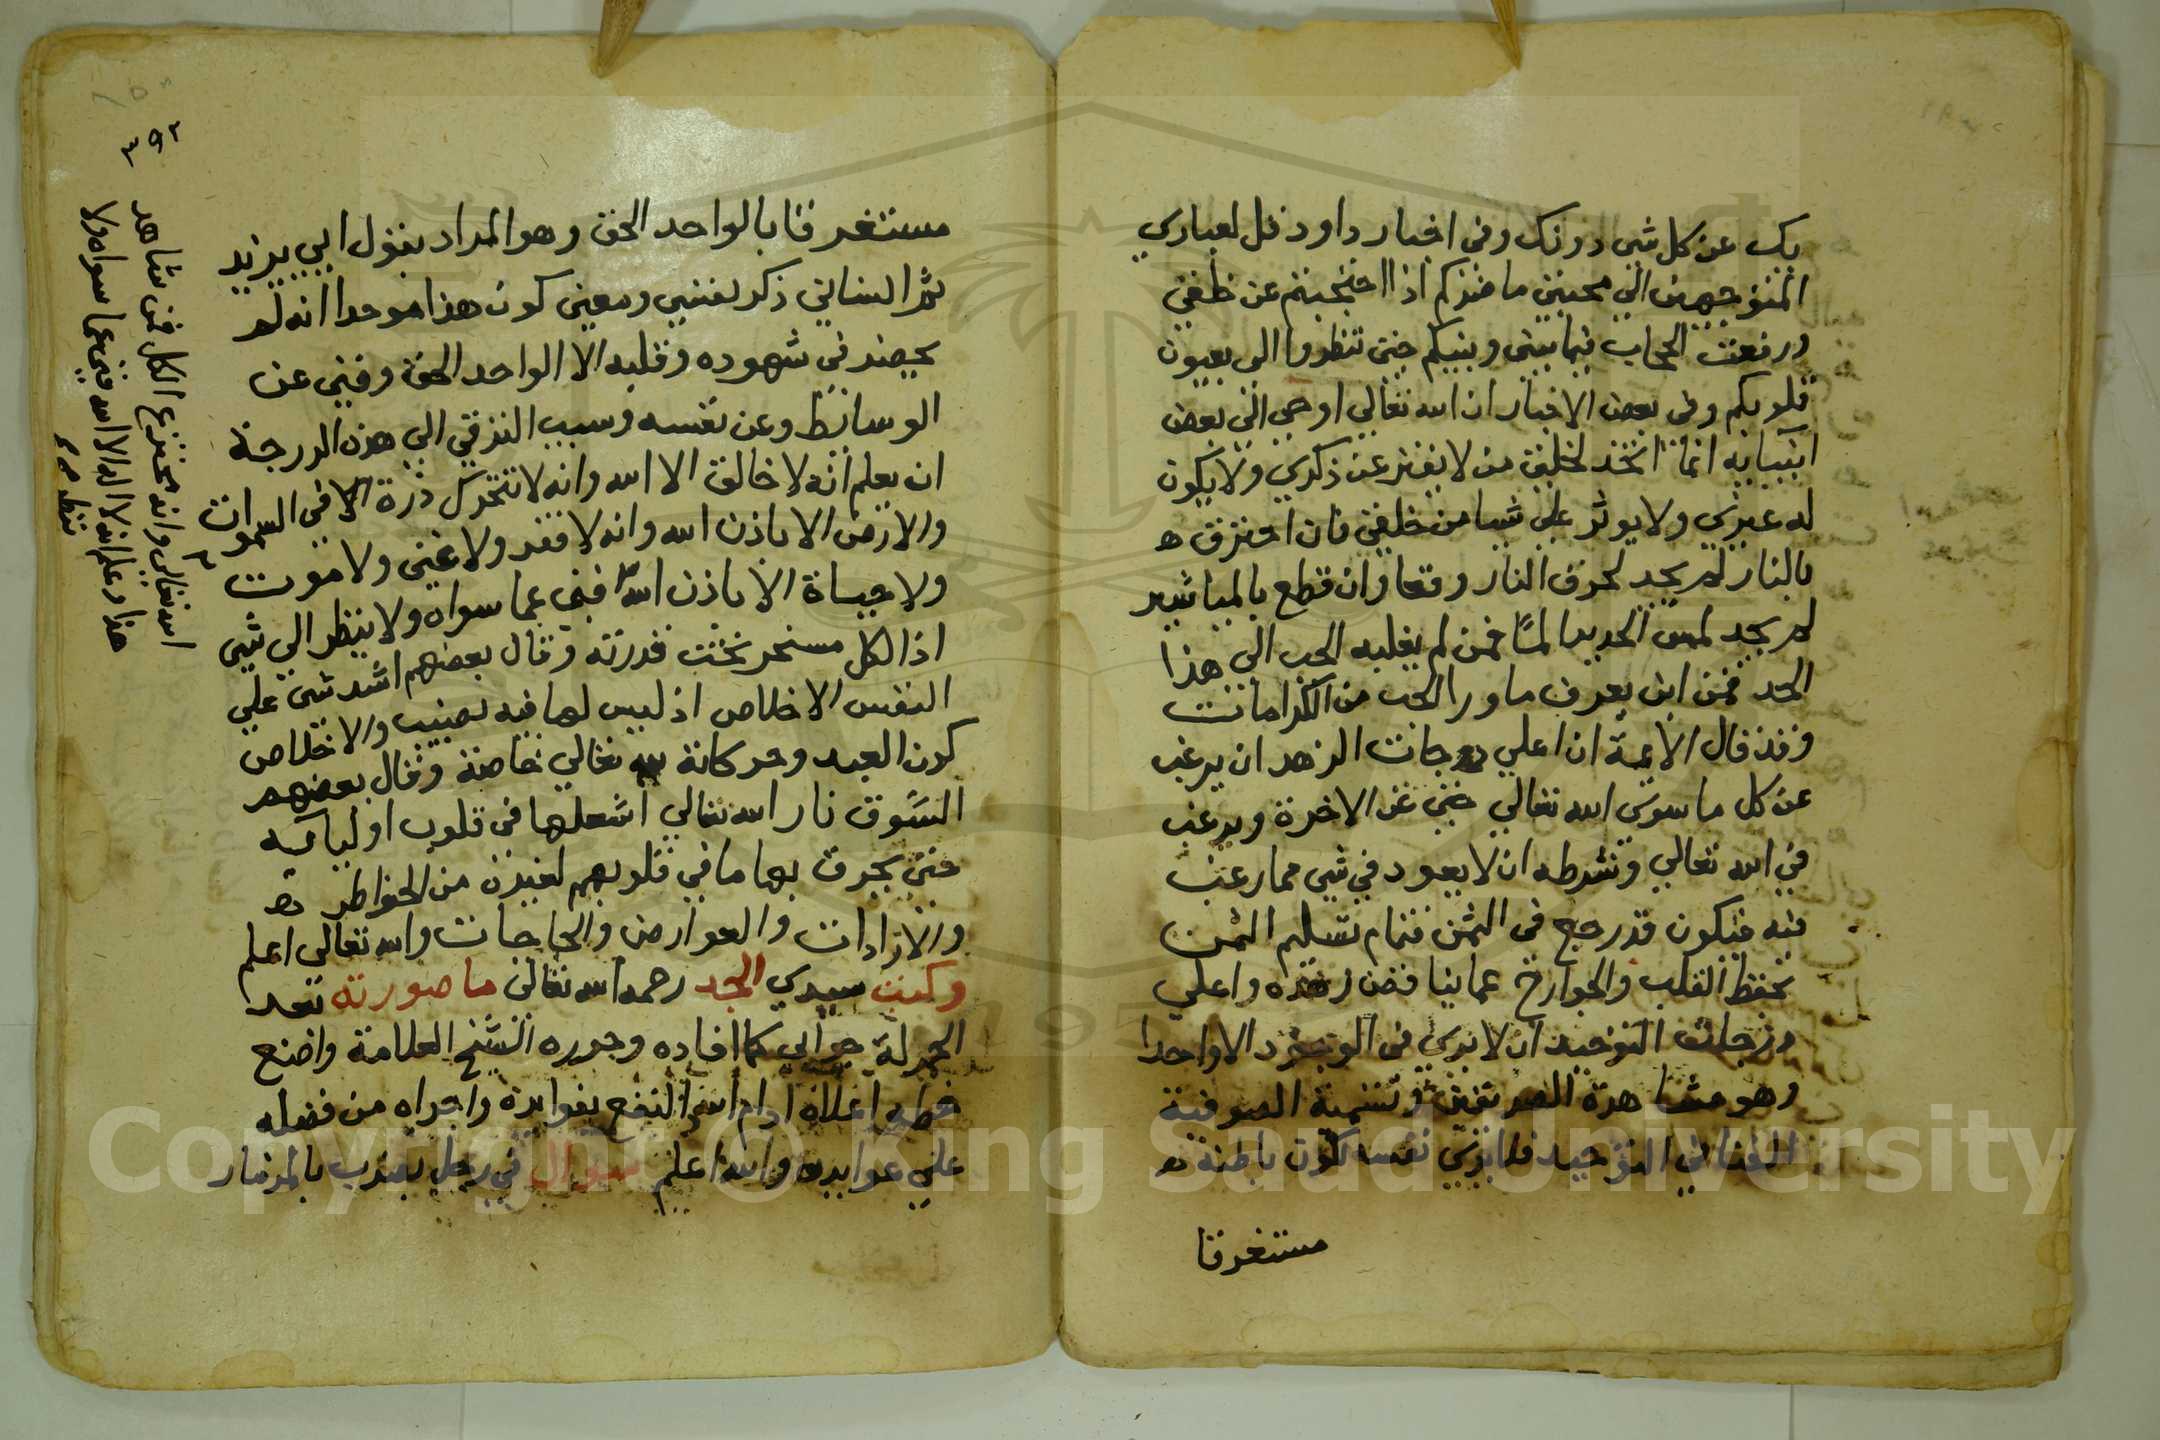 بك عن كل شي دونك وفي اخبار داود قل لعبادي
المتوجهين الي محبتي ما ضركم اذا احتجبتم عن خلقي
ورفعت الحجاب فيما بيني وبينكم حتى تنظروا الى بعيون
قلوبكم وفي بعض الاخبار ان الله تعالي اوحي الي بعض
انبيايه انما اتخذ لخلتي من لا يفتر عن ذكري ولا يكون
له غيري ولا يوثر علي شيا من خلقي فان احترق
بالنار لم يجد لحرق النار وقعا وان قطع بالمناشير
لم يجد لمس الحديد المًا فمن لم يغلبه الحب الي هذا
الحد فمن اين يعرف ما ورا الحب من الكرامات
وقد قال الايمة ان اعلي درجات الزهد ان يرغب
عن كل ما سوى الله تعالي حتى عن الاخرة ويرغب
في الله تعالي وشرطه ان لا يعود في شي مما رغب
فيه فيكون قد رجع في الثمن فتمام تسليم الثمن
بحفظ القلب والجوارح عما ينافض زهده واعلي
درجات التوحيد ان لا يري في الوجود الا واحدا
وهو مشاهدة الصديقين وتسمية الصوفية
الفنا في التوحيد فلا يري نفسه لكون باطنه
مستغرقا
مستغرقا بالواحد الحق وهو المراد بقول ابي يزيد
ثم انساني ذكر نفسي ومعني كون هذا موحدا انه لم
يحضر في شهوده وقلبه الا الواحد الحق وفني عن
الوسائط وعن نفسه وسبب الترقي الي هذه الدرجة
ان يعلم انه لا خالق الا الله وانه لا تتحرك ذرة في السموات
والارض الا باذن الله وانه لا فقر ولا غني ولا موت
ولا حياة الا باذن الله فني عما سواه ولا ينظر الي شي
اذ الكل مسخر تحت قدرته وقال بعضهم اشد شي علي
النفس الاخلاص اذ ليس لها فيه نصيب والاخلاص
كون العبد وحركاته لله تعالي خاصة وقال بعضهم
الشوق نار الله تعالي اشعلها في قلوب اوليايه
حتى يحرق بها ما في قلوبهم لغيره من الخواطر
والارادات والعوارض والحاجات والله تعالي اعلم
وكتب سيدي الجد رحمه الله تعالي ما صورته بعد
الحمدلة جوابي كما افاده وحرره الشيخ العلامة واضع
خطه اعلاه ادام الله النفع بفوايده واجراه من فضله
علي عوايده والله اعلم سوال في رجل يضرب بالمزمار
٣٩٢
الله تعالي وانه مخترع الكل فمن شاهد
هذا وعلم انه لا اله الا الله فني عما سواه ولا
ينظر